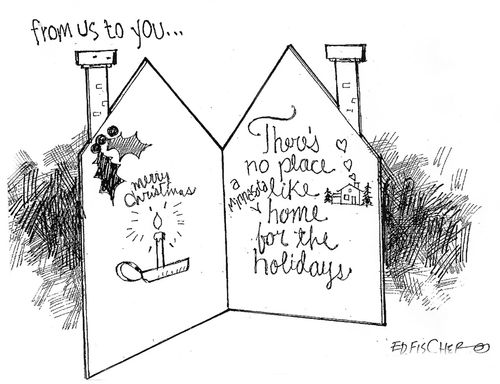 from us to you...
merry
Christmas
There's
no place
like
a Minnesota
home
for the
holidays
ED FISCHER